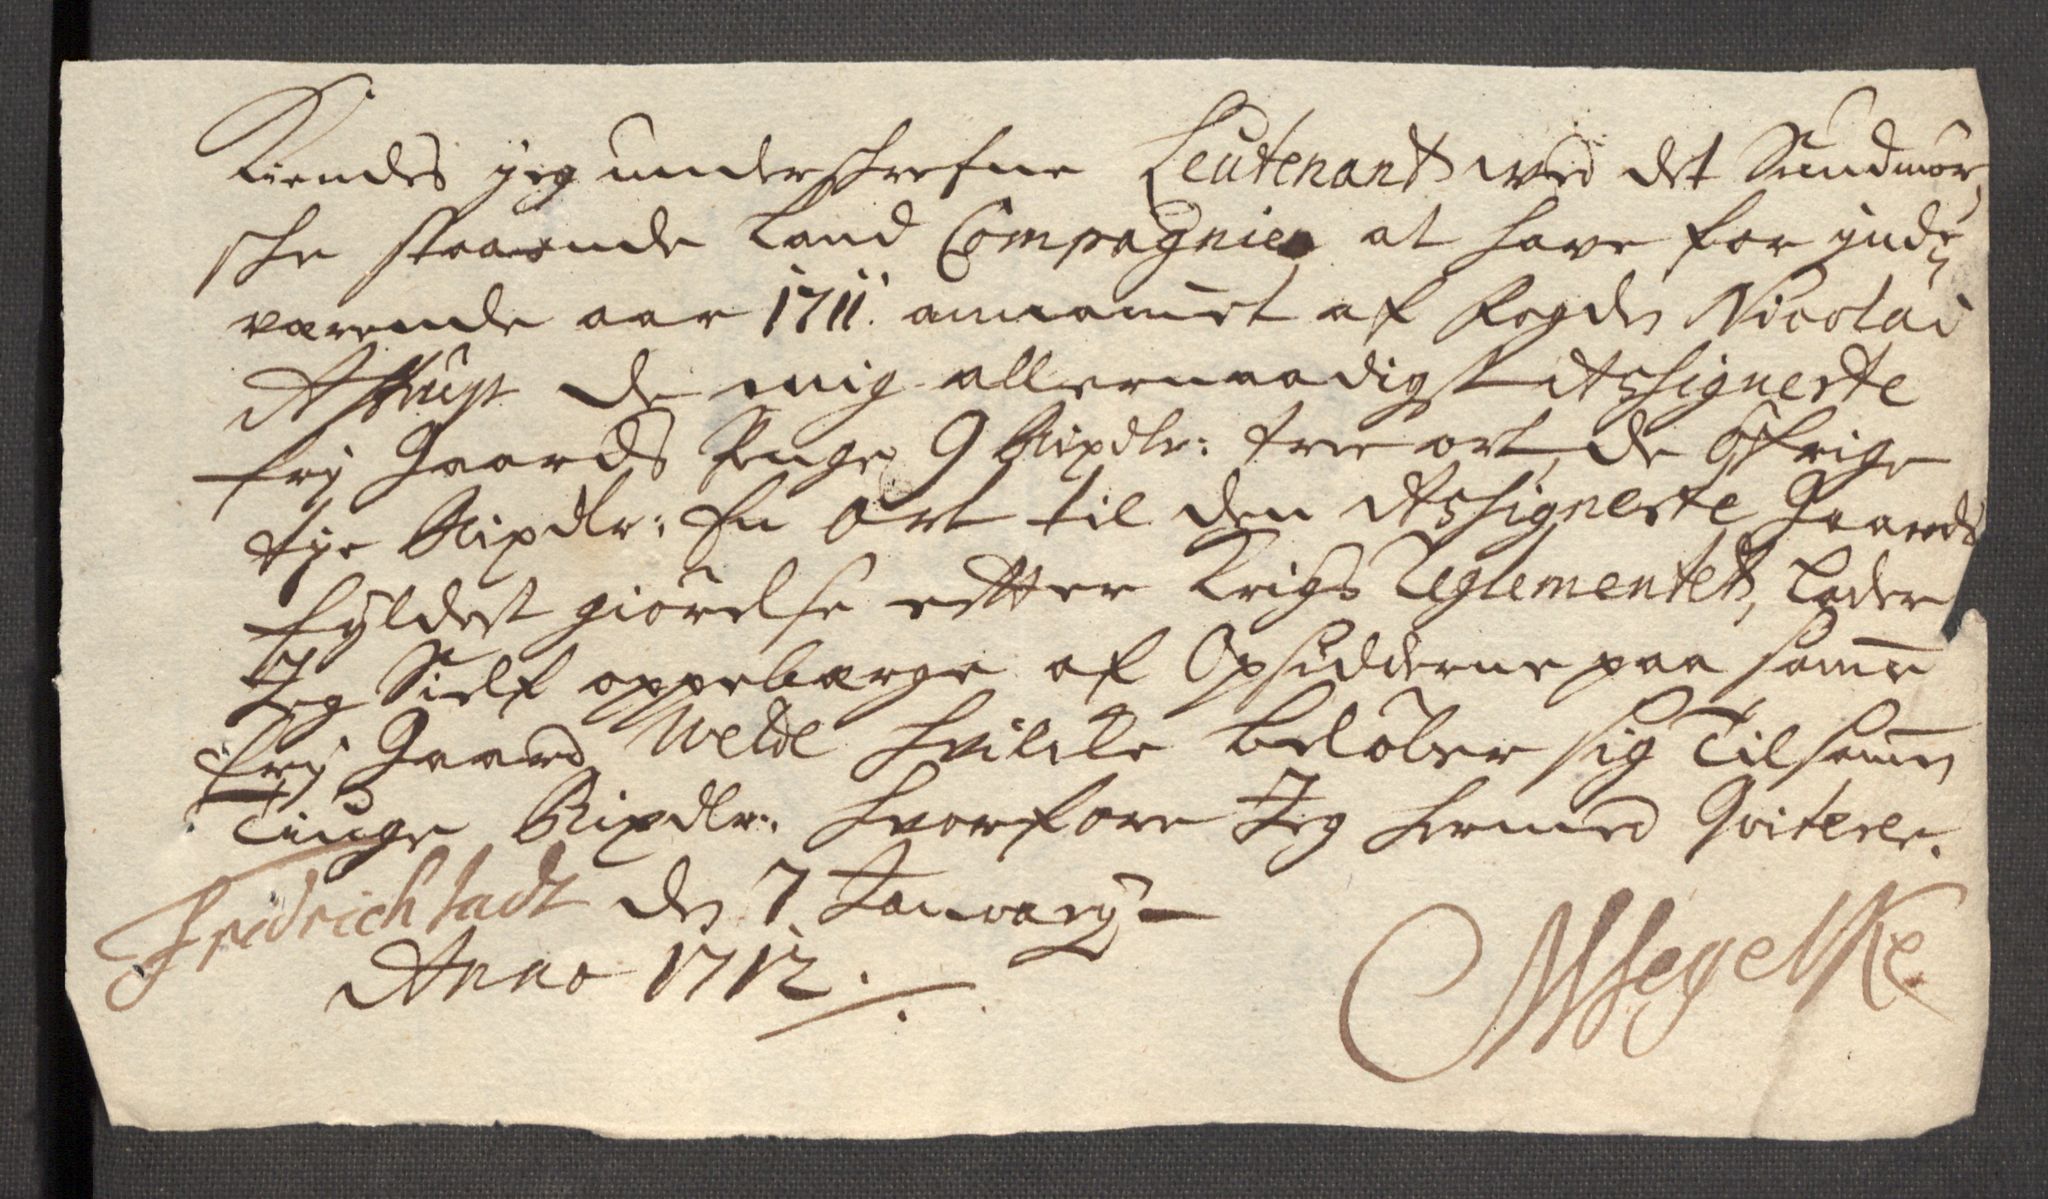 Kiendes jeg underschrefne Leutenant wed det Sundmør,
sche staaende Land Compagnie at have for inde,
værende aar 1711. annammet af Fogden Nicolai
Astrup de mig allernaadigst Assignerte
frij Gaards Penge 9 Rixdlr: tree ort, de Øfrige
tije Rixdlr: En Ort til den Assignerte Gaards
fyldest giørelse efter Krigs Reglementet, Lader
Jeg Sielf oppebærge af Opsidderne paa samme
frij Gaard Welde hvilcke beløber sig Tilsammen
Tiuge Rixdlr: hvorfore Jeg hermed Qviterer.
Fridrichstadt den 7 Janvarij
Anno 1712.
MSegelKe